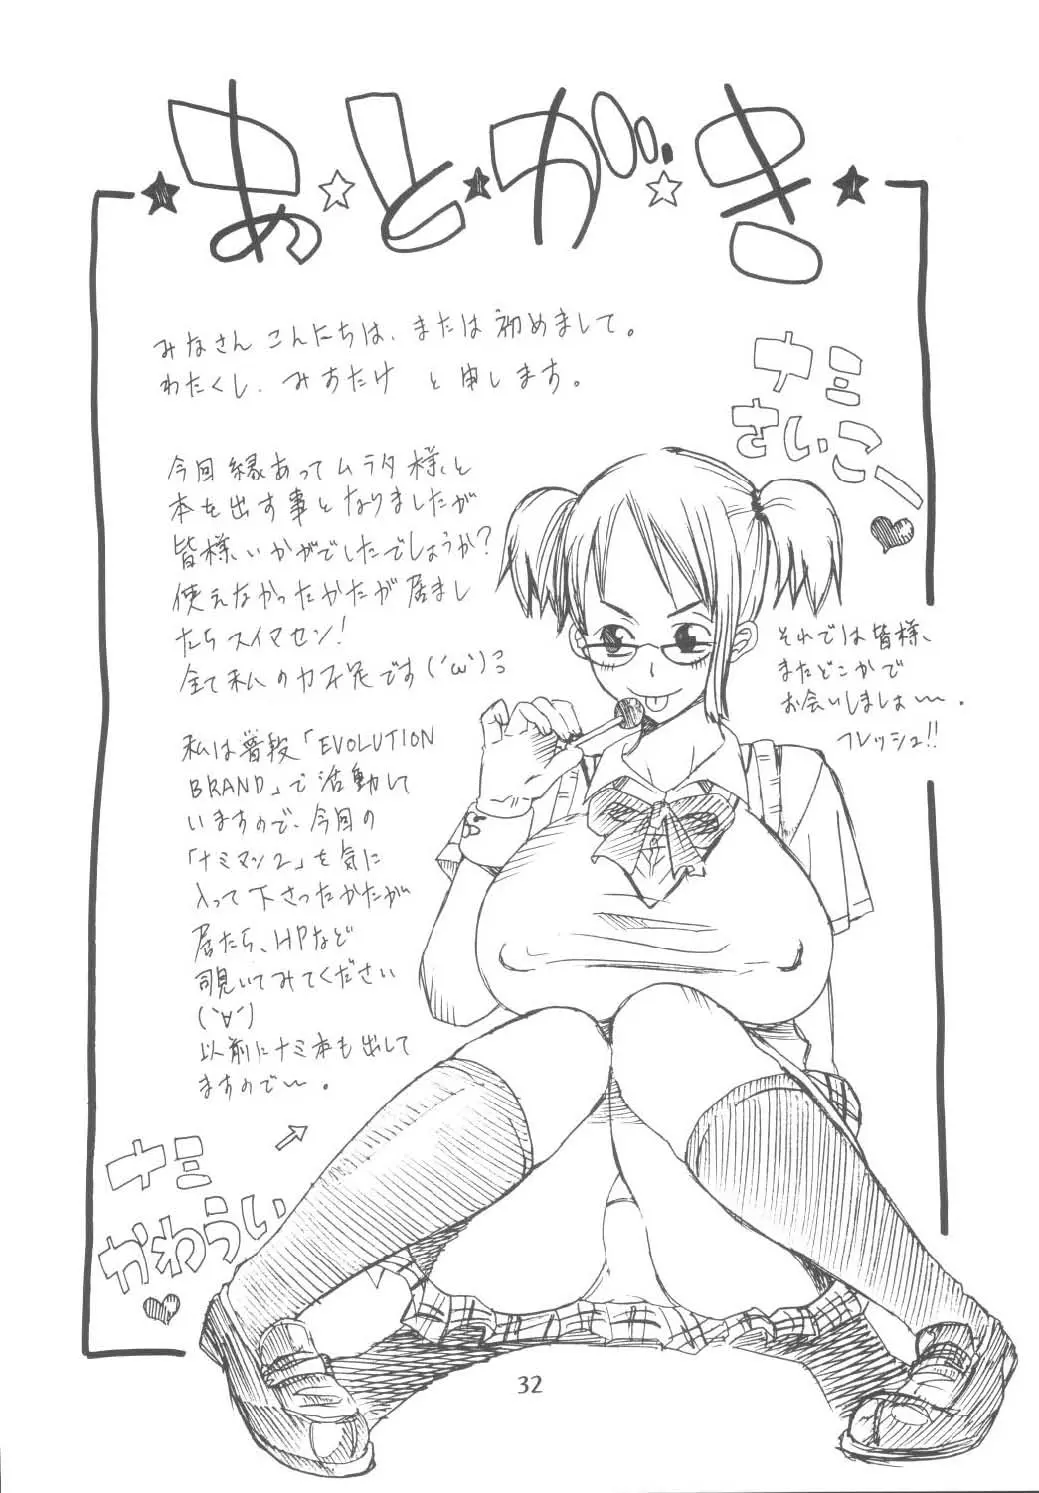 あとがき
みなさん こんにちは、または初めまして。
わたくし、みすたけ と申します。
今回縁あってムラタ様と
本を出す事となりましたが
皆様いかがでしたでしょうか?
使えなかったかたが居まし
たらスイマセン!
全て私の力不足です(´ω`)
私は普段「EVOLUTION
BRAND」で活動して
いますので、今回の
「ナミマン2」を気に
入って下さったかたが
居たら、HPなど
覗いてみてください
(`∀´)
以前にナミ本も出して
ますので〜。
ナミ
さいこー
それでは皆様、
またどこかで
お会いしましょ〜。
フレッシュ!!
ナミ
かわうい
32